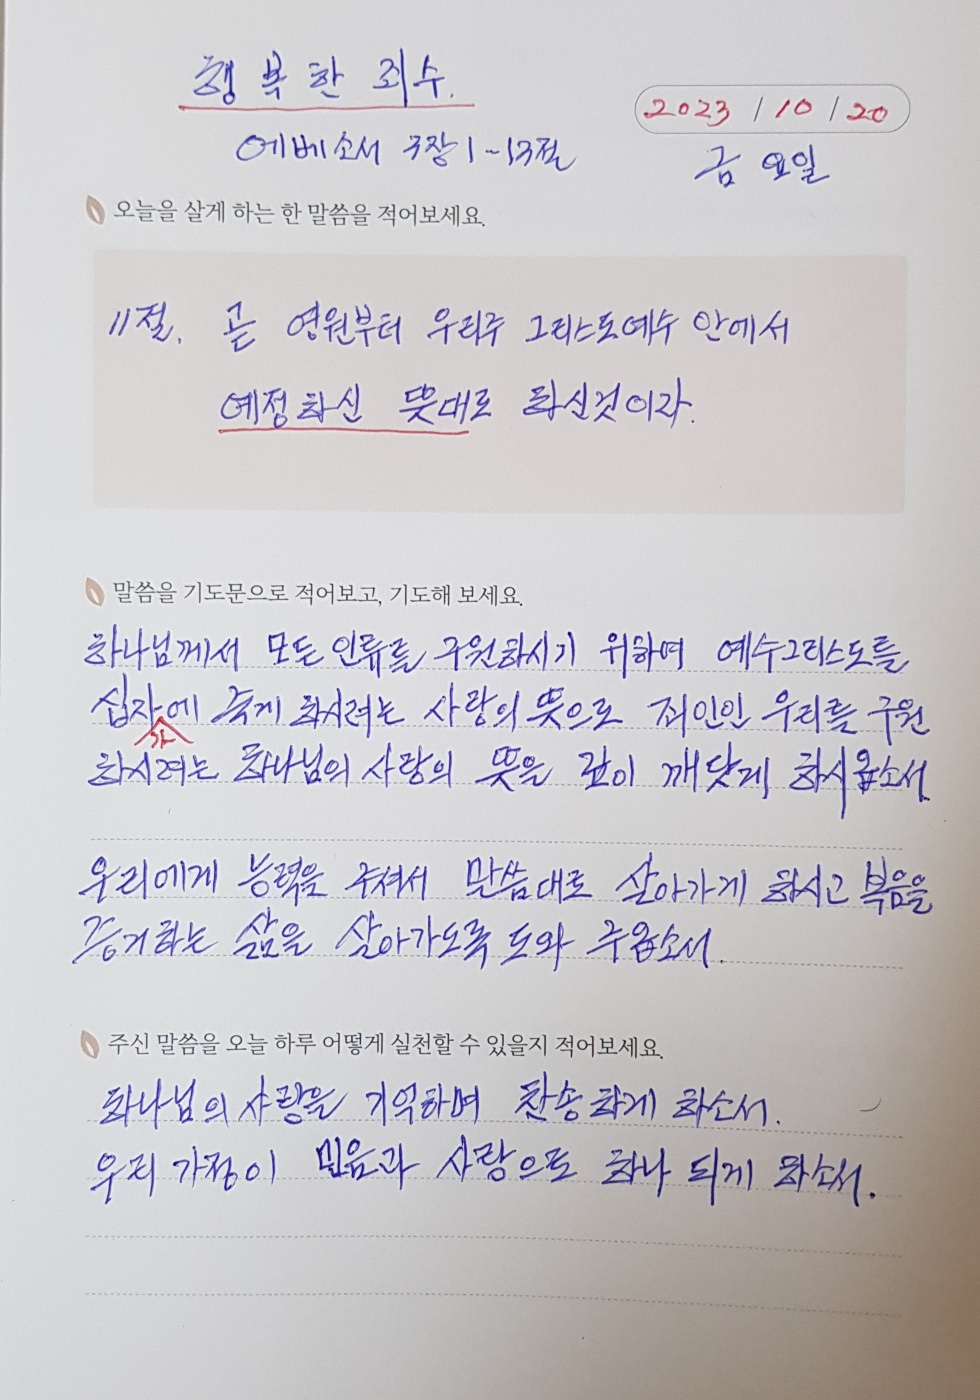 행복한 죄수.
2023 / 10 / 20
에베소서 3장 1~13절
금요일
오늘을 살게 하는 한 말씀을 적어보세요.
11절. 곧 영원부터 우리주 그리스도예수 안에서
예정하신 뜻대로 하신것이라.
말씀을 기도문으로 적어보고, 기도해 보세요.
하나님께서 모든 인류를 구원하시기 위하여 예수그리스도를
십자가에 죽게 하시려는 사랑의 뜻으로 죄인인 우리를 구원
하시려는 하나님의 사랑의 뜻을 깊이 깨닷게 하시옵소서.
우리에게 능력을 주셔서 말씀대로 살아가게 하시고 복음을
증거하는 삶을 살아가도록 도와 주옵소서.
주신 말씀을 오늘 하루 어떻게 실천할 수 있을지 적어보세요.
하나님의 사랑을 기억하며 찬송하게 하소서.
우리 가정이 믿음과 사랑으로 하나 되게 하소서.